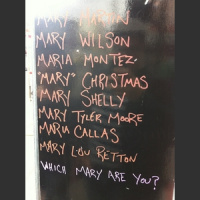 MARY
MARY WILSON
MARIA MONTEZ
"MARY" CHRISTMAS
MARY SHELLY
MARY TYLER MOORE
MARIA CALLAS
MARY LOU RETTON
WHICH MARY ARE YOU?